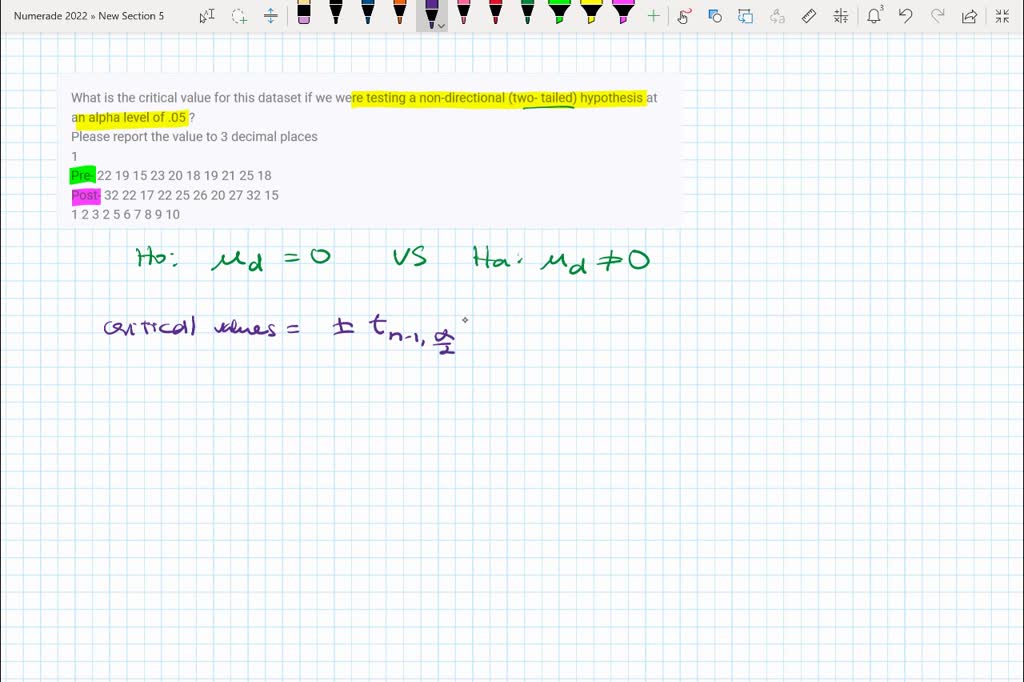 Numerade 2022 » New Section 5
3
What is the critical value for this dataset if we were testing a non-directional (two- tailed) hypothesis at
an alpha level of .05 ?
Please report the value to 3 decimal places
1
Pre- 22 19 15 23 20 18 19 21 25 18
Post- 32 22 17 22 25 26 20 27 32 15
1 2 3 2 5 6 7 8 9 10
Ho: μd = 0 vs Ha: μd ≠ 0
critical values = ± t n-1, α/2